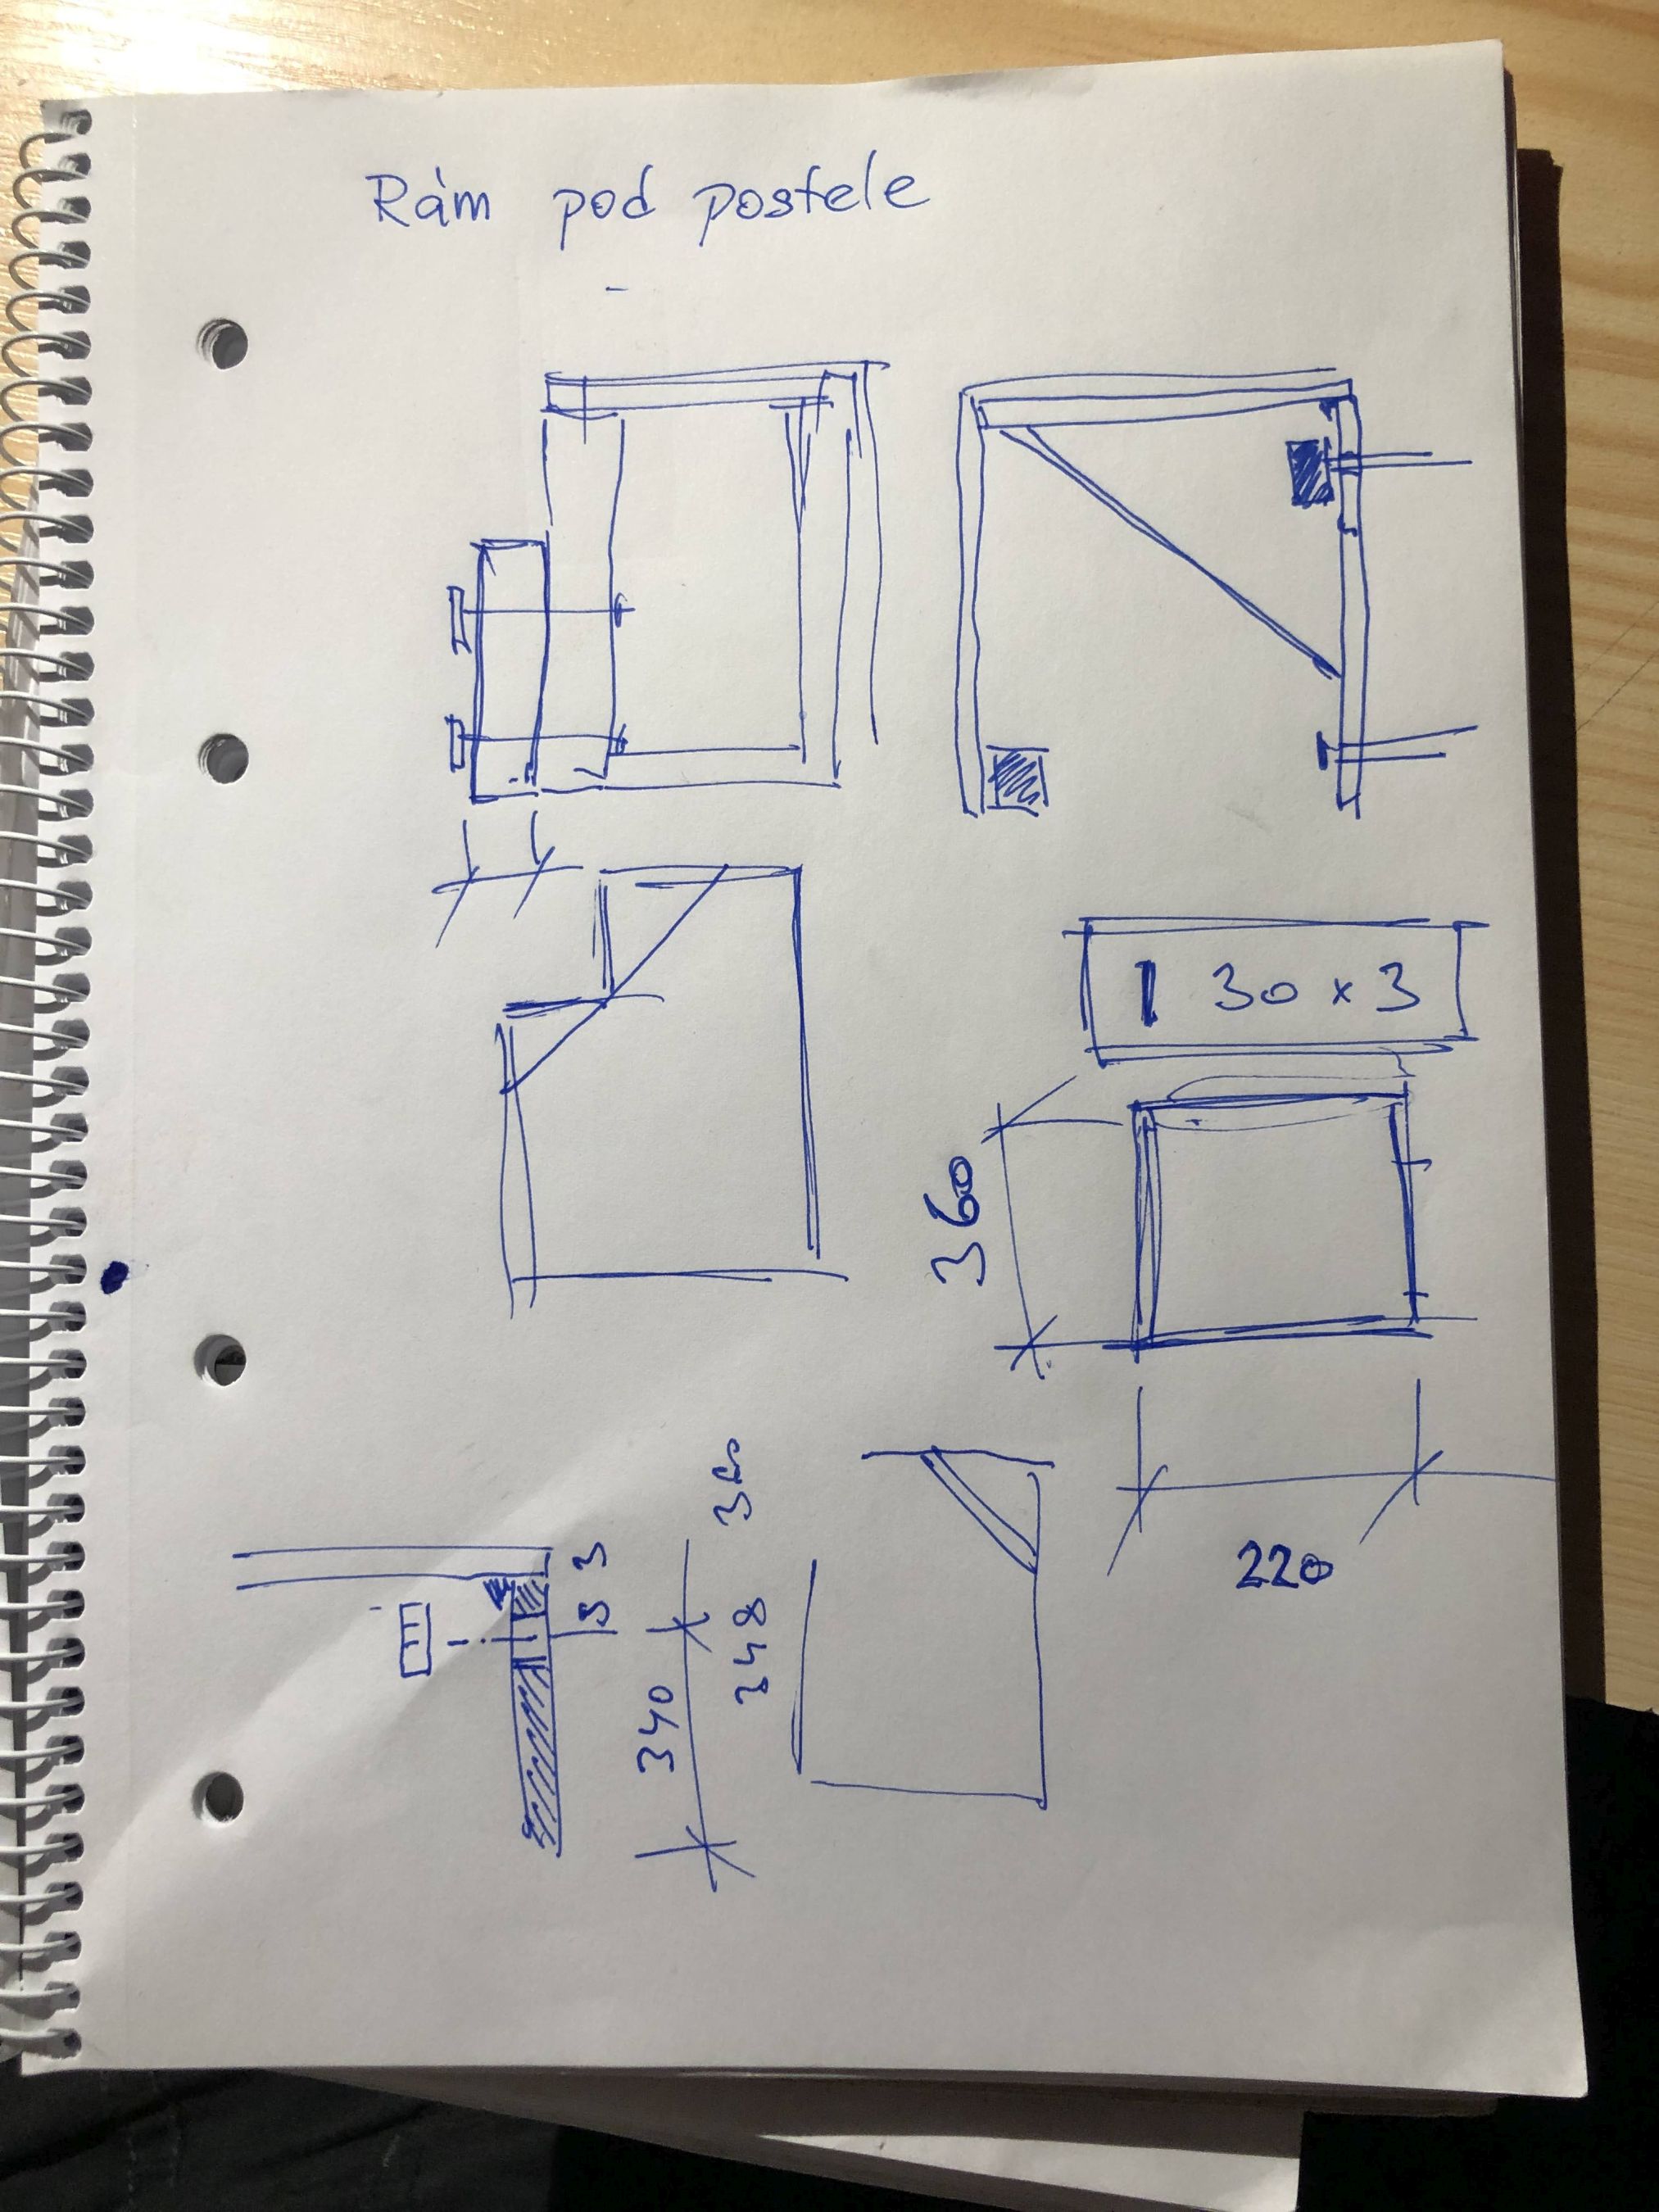 Rám pod postele
30 x 3
360
220
3
340
348